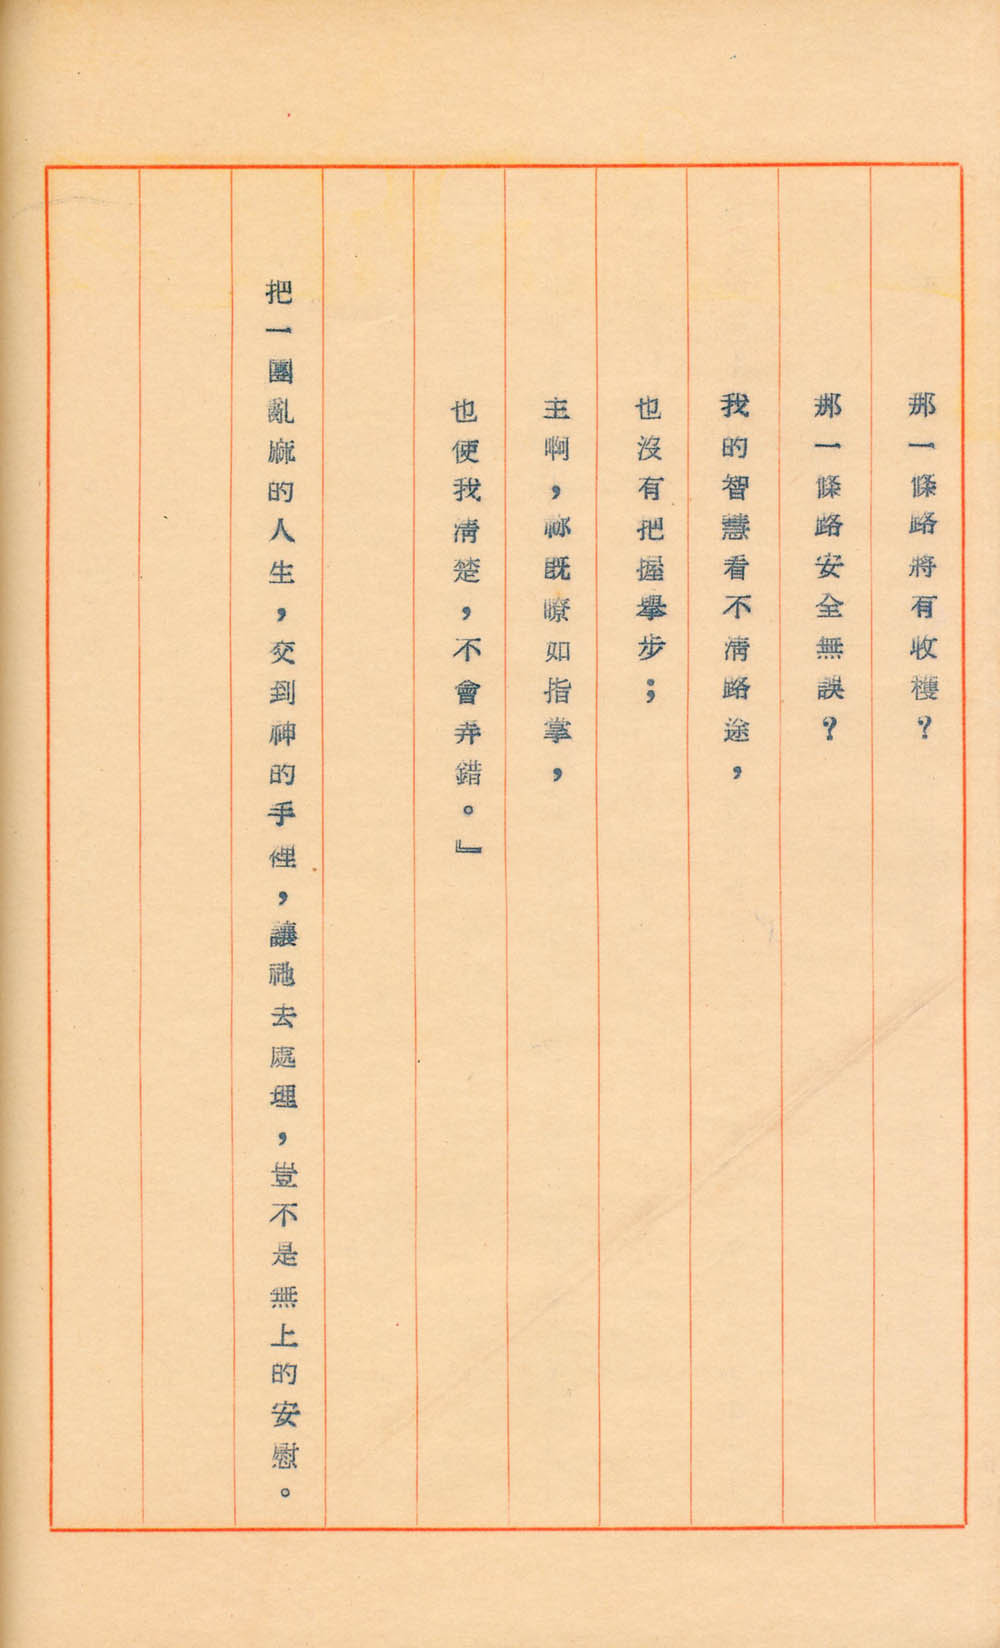 那一條路將有收穫？
那一條路安全無誤？
我的智慧看不清路途，
也沒有把握舉步；
主啊，祢既瞭如指掌，
也使我清楚，不會弄錯。』
把一團亂麻的人生，交到神的手裡，讓祂去處理，豈不是無上的安慰。